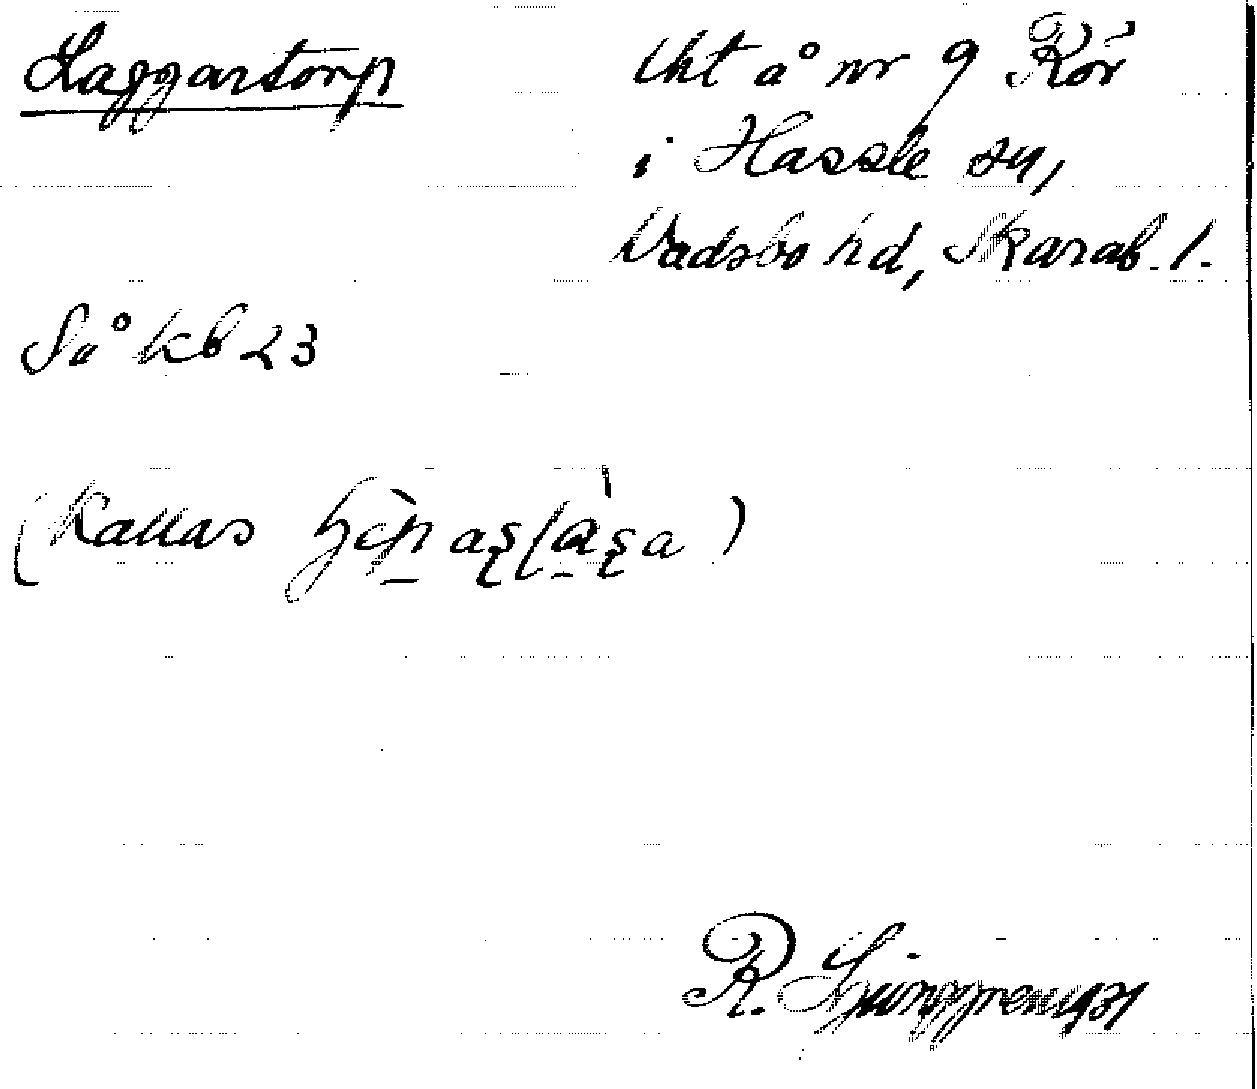 Laggartorp
lht å nr 9 Rör
i Hassle sn,
Vadsbo hd, Skarab. l.
Så kb 23
(Kallas
R. Ljunggren 1931